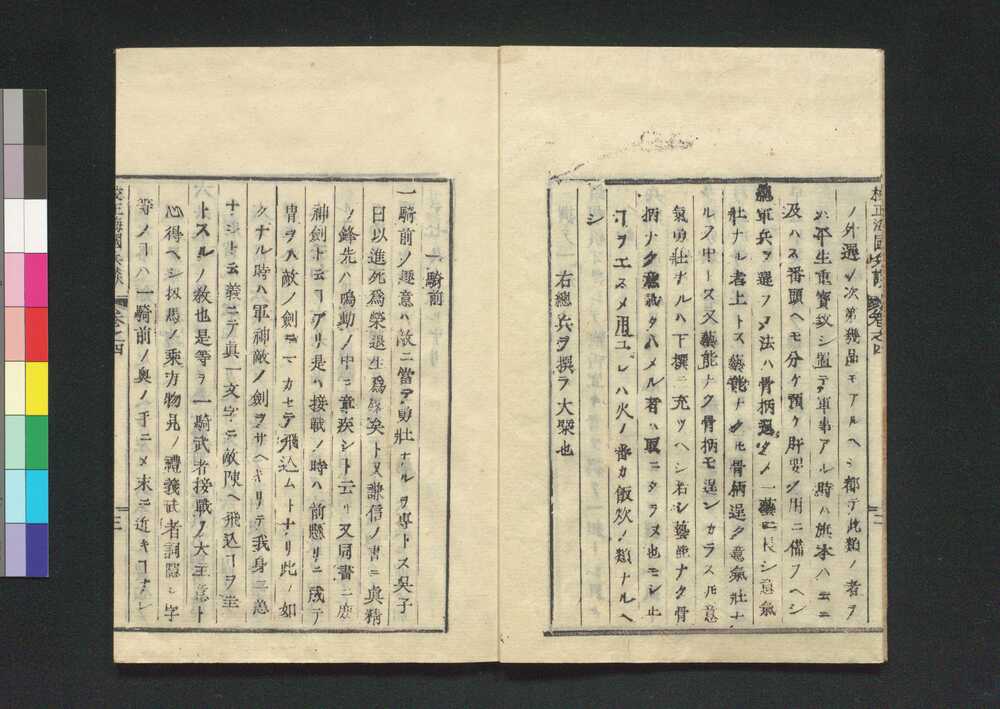 校正海國兵談 卷之四
ノ外選ノ次第幾品モアルヘシ都テ此類ノ者ヲ
ハ平生重寶紋シ置テ軍事アル時ハ旗本ハ云ニ
及ハス番頭ヘモ分ケ預ケ肝要ノ用ニ備フヘシ
總軍兵ヲ選フノ法ハ骨柄逞シメ一藝ニ長シ意氣
壯ナル者上トス藝能ナクモ骨柄逞ク意氣壯ナ
ルハ中トス又藝能ナク骨柄モ逞シカラス𪜈意
氣勇壯ナルハ下撰ニ充ツヘシ若シ藝能ナク骨
柄ナク意
者ハ取ニタラヌ也モシ止
ヿヲエスメ用ユレハ火ノ番カ飯炊ノ類ナルヘ
シ
一右總兵ヲ撰ラ大槩也
一騎前
一騎前ノ趣意ハ敵ニ當テ勇壯ナルヲ專トス吳子
曰以進死爲榮退生爲辱矣ト又謙信ノ書ニ眞精
ノ鋒先ハ鳴動ノ中ニ童疾シト云リ又同書ニ鹿
神劍ト云ヿアリ是ハ接戰ノ時ハ前懸リニ成テ
胄ヲハ敵ノ劍ニマカセテ飛込ムトナリ此ノ如
クナル時ハ軍神敵ノ劍ヲサヘキリテ我身ニ恙
ナシト云義ニテ眞一文字ニ敵陳ヘ飛込ヿヲ主
トスルノ敎也是等ヲ一騎武者接戰ノ大主意ト
心得ヘシ扨馬ノ乘方物見ノ禮義武者詞隱シ字
等ノヿハ一騎前ノ奧ノ手ニメ末ニ近キヿナレ
校正海國兵談 卷之四 三